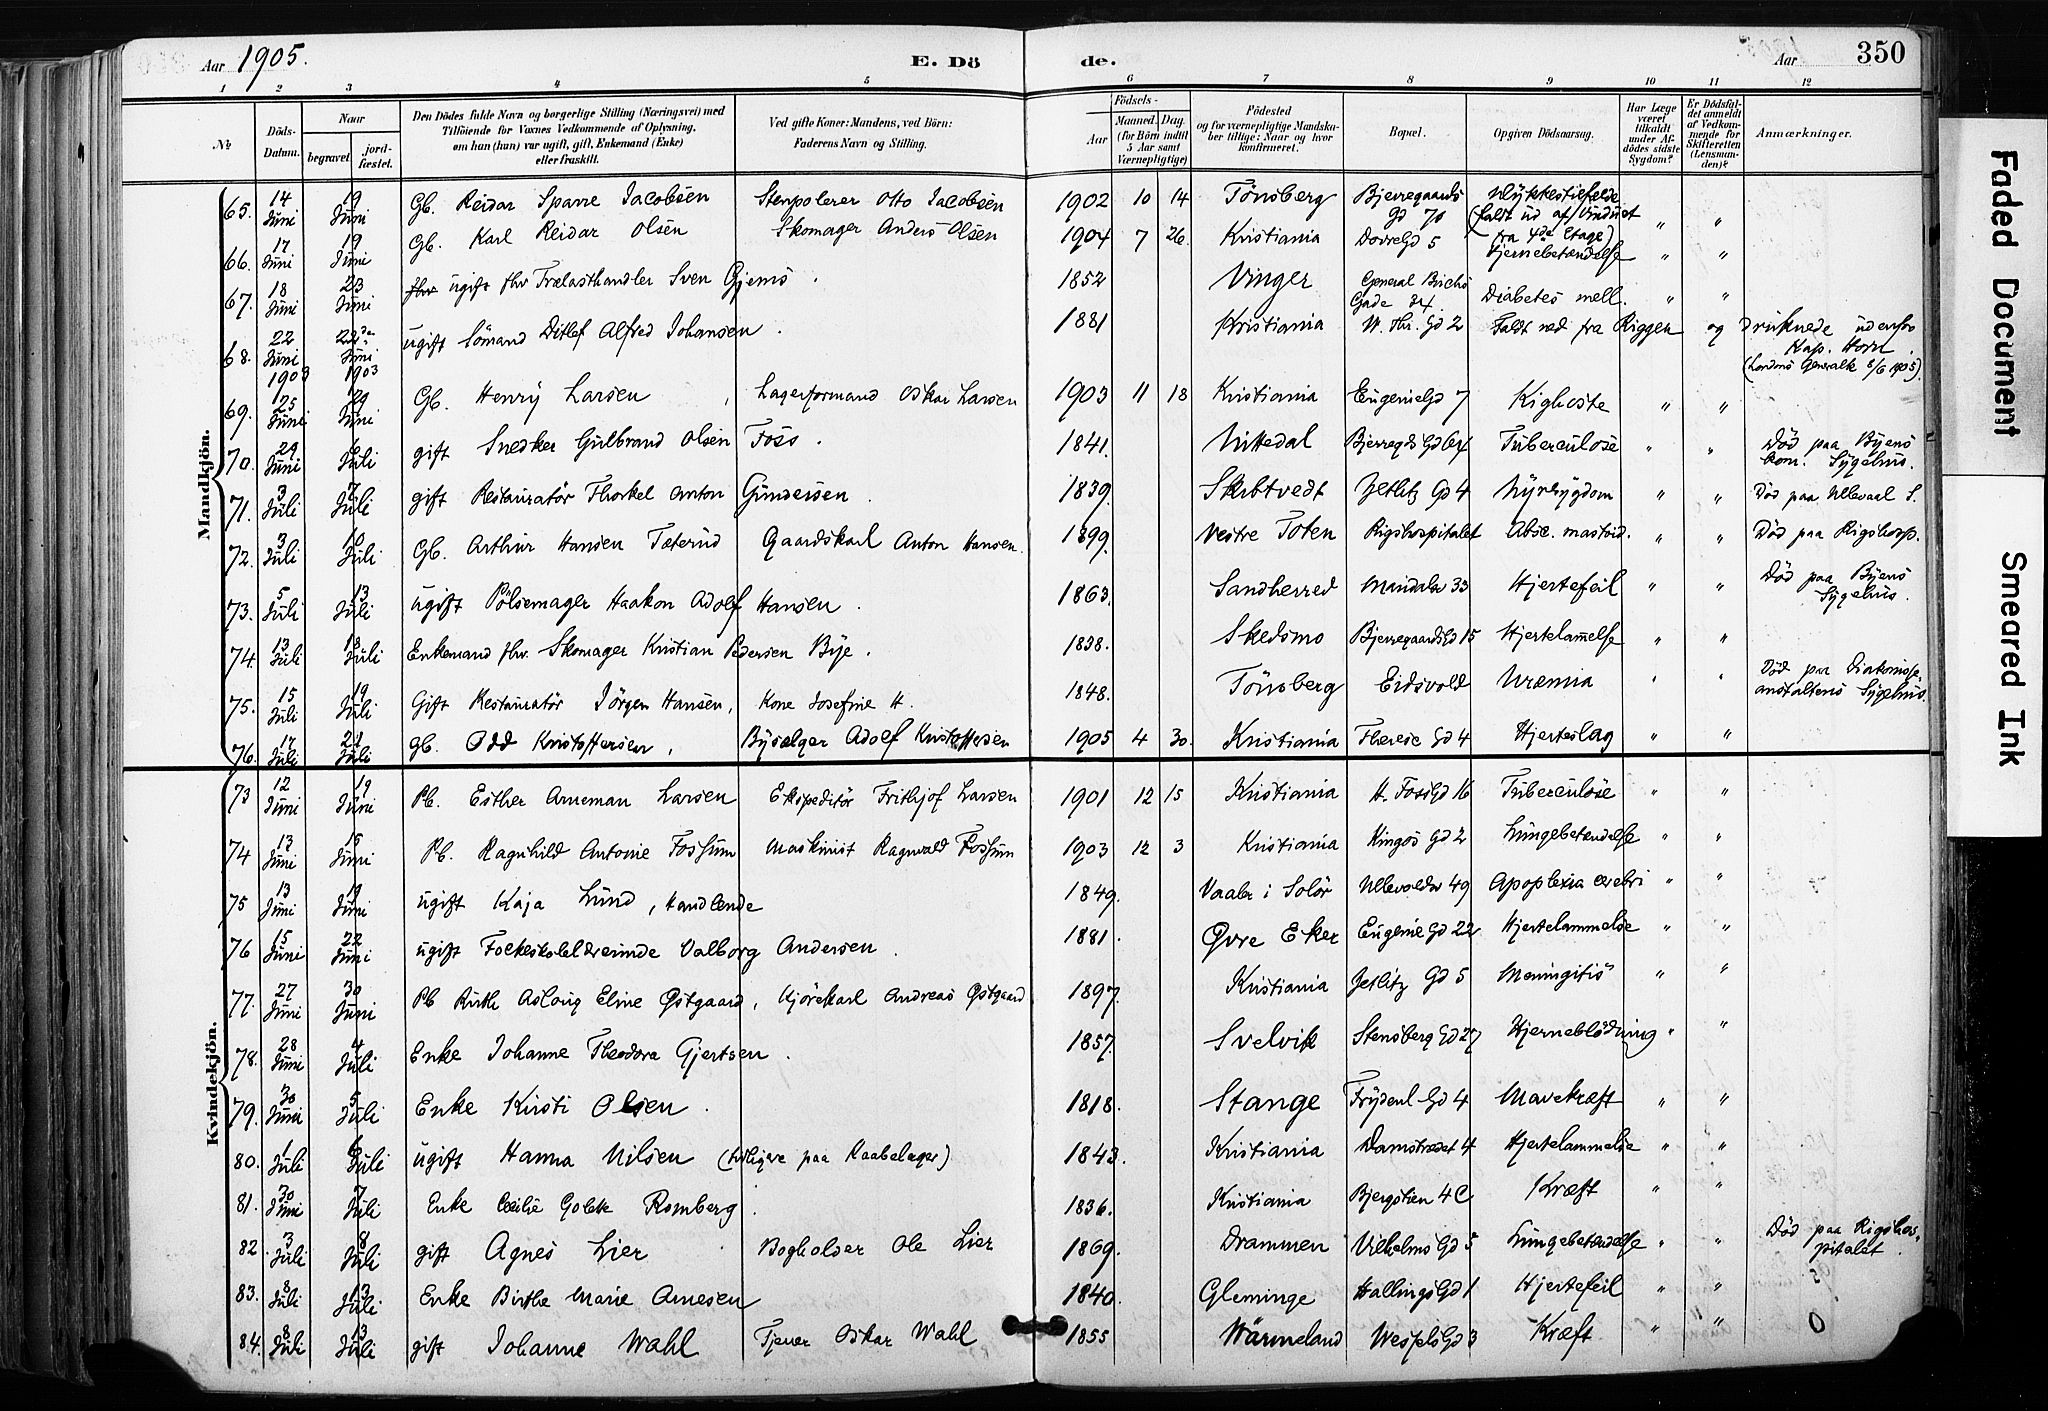 Aar 1905.
E. Dö de.
Aar 350
1 2 3 4 5 6 7 8 9 10 11 12
№
Döds-Datum.
Naar
begravet.
jordfæstet.
Den Dödes fulde Navn og borgerlige Stilling (Næringsvei) med
Tilföiende for Voxnes Vedkommende af Oplysning,
om han (hun) var ugift, gift, Enkemand (Enke)
eller fraskilt.
Ved gifte Koner: Mandens, ved Börn:
Faderens Navn og Stilling.
Födsels-
Aar
Maaned. Dag.
(for Börn indtil
5 Aar samt
Værnepligtige)
Födested
og for værnepligtige Mandskaber tillige: Naar og hvor
konfirmeret.
Bopæl.
Opgiven Dödsaarsag.
Har Læge været tilkaldt under Afdödes sidste Sygdom?
Er Dödsfaldet anmeldt af Vedkommende for Skifteretten (Lensmanden)?
Anmærkninger.
Mandkjön.
65. 14 Juni 19 Juni Gb. Reidar Sparre Jacobsen Stenpolerer Otto Jacobsen 1902 10 14 Tönsberg Bjerregaards Gd 70 Ulykkestilfælde (faldt ud af Vinduet fra 4de Etage) " "
66. 17 Juni 19 Juni Gb. Karl Reidar Olsen Skomager Anders Olsen 1904 7 26. Kristiania DovreGd 5 Hjernebetændelse " "
67. 18 Juni 23 Juni fhv ugift fhv Trælasthandler Sven Gjems. 1852 Vinger General Birchs Gade 34 Diabetes mell. " "
68. 22 Juni 1903 22de Juni 1903 ugift Sömand Ditlef Alfred Johansen. 1881 Kristiania W. Thr. Gd 2 Faldt ned fra Riggen og druknede udenfor Kap. Horn.
(Londons Generalk 8/6 1905).
69. 25 Juni 29 Juni Gb. Henry Larsen, Lagerformand Oskar Larsen 1903 11 18 Kristiania EugenieGd 7 Kighoste " "
70. 29 Juni 6 Juli gift Snedker Gulbrand Olsen Foss. 1841. Nittedal Bjerregds Gd 64 Tuberculose " " Död paa Byens kom. Sygehus.
71. 3 Juli 7 Juli gift Restauratör Thorkel Anton Gundersen. 1839. Skibtvedt Jetlitz Gd 4 Nyresygdom " " Död paa Ullevaal S.
72. 3 Juli 10 Juli Gb. Arthur Hansen Tæterud Gaardskarl Anton Hansen. 1899. Vestre Toten Rigshospitalet Absc. mastoid. " " Död paa Rigshosp.
73. 5 Juli 13 Juli ugift Pölsemager Haakon Adolf Hansen. 1863. Sandherred Maridalsv 33 Hjertefeil " " Död paa Byens Sygehus.
74. 13 Juli 18 Juli Enkemand fhv. Skomager Kristian Pedersen Bye. 1838. Skedsmo BjerregaardsGd 15 Hjertelammelse " "
75. 15 Juli 19 Juli Gift Restauratör Jörgen Hansen, Kone Josefine H. 1848. Tönsberg Eidsvold Uræmia " " Död paa Diakonisseanstaltens Sygehus.
76. 17 Juli 21 Juli gb. Odd Kristoffersen, Bysælger Adolf Kristoffersen 1905 4 30. Kristiania Therese Gd 4 Hjerteslag " "
Kvindekjön.
73 12 Juni 19 Juni Pb. Esther Arneman Larsen Ekspeditör Frithjof Larsen 1901 12 15 Kristiania H. FossGd 16 Tuberculose " "
74 13 Juni 15 Juni Pb. Ragnhild Antonie Fossum Maskinist Ragnvald Fossum 1903 12 3 Kristiania Kingos Gd 2 Lungebetændelse " "
75 13 Juni 19 Juni ugift Kaja Lund, Handlende 1849. Vaaler i Solör Ullevoldsv 49 Apoplexia cerebri " "
76 15 Juni 22 Juni ugift Folkeskolelærerinde Valborg Andersen. 1881. Øvre Eker Eugenie Gd 22 Hjertelammelse " "
77. 27 Juni 30 Juni Pb Ruth Aslaug Eline Østgaard, Kjörekarl Andreas Østgaard 1897. Kristiania Jetlitz Gd 5 Meningitis " "
78. 28 Juni 4 Juli Enke Johanne Theodora Gjertsen. 1857. Svelvik Stensberg Gd 27 Hjerneblödning " "
79. 30 Juni 5 Juli Enke Kirsti Olsen. 1818. Stange Frydenl Gd 4 Mavekræft " "
80. 1 Juli 6 Juli ugift Hanna Nilsen (tidligere paa Kaabelager) 1843. Kristiania Damstrædet 4 Hjertelammelse " "
81. 30 Juni 7 Juli Enke Cecilie Romberg. 1836. Kristiania Bjergstien 4C Kræft " "
82. 3 Juli 8 Juli gift Agnes Lier Bogholder Ole Lier 1869. Drammen Vilhelms Gd 5 Lungebetændelse " " Död paa Rigshospitalet.
83. 8 Juli 13 Juli Enke Birthe Marie Arnesen 1840. Gleminge Hallings Gd 1 Hjertefeil " "
84. 8 Juli 13 Juli gift Johanne Wahl Tjener Oskar Wahl 1855 Wärmeland WesselsGd 3 Kræft " " 0
Faded Document
Smeared Ink